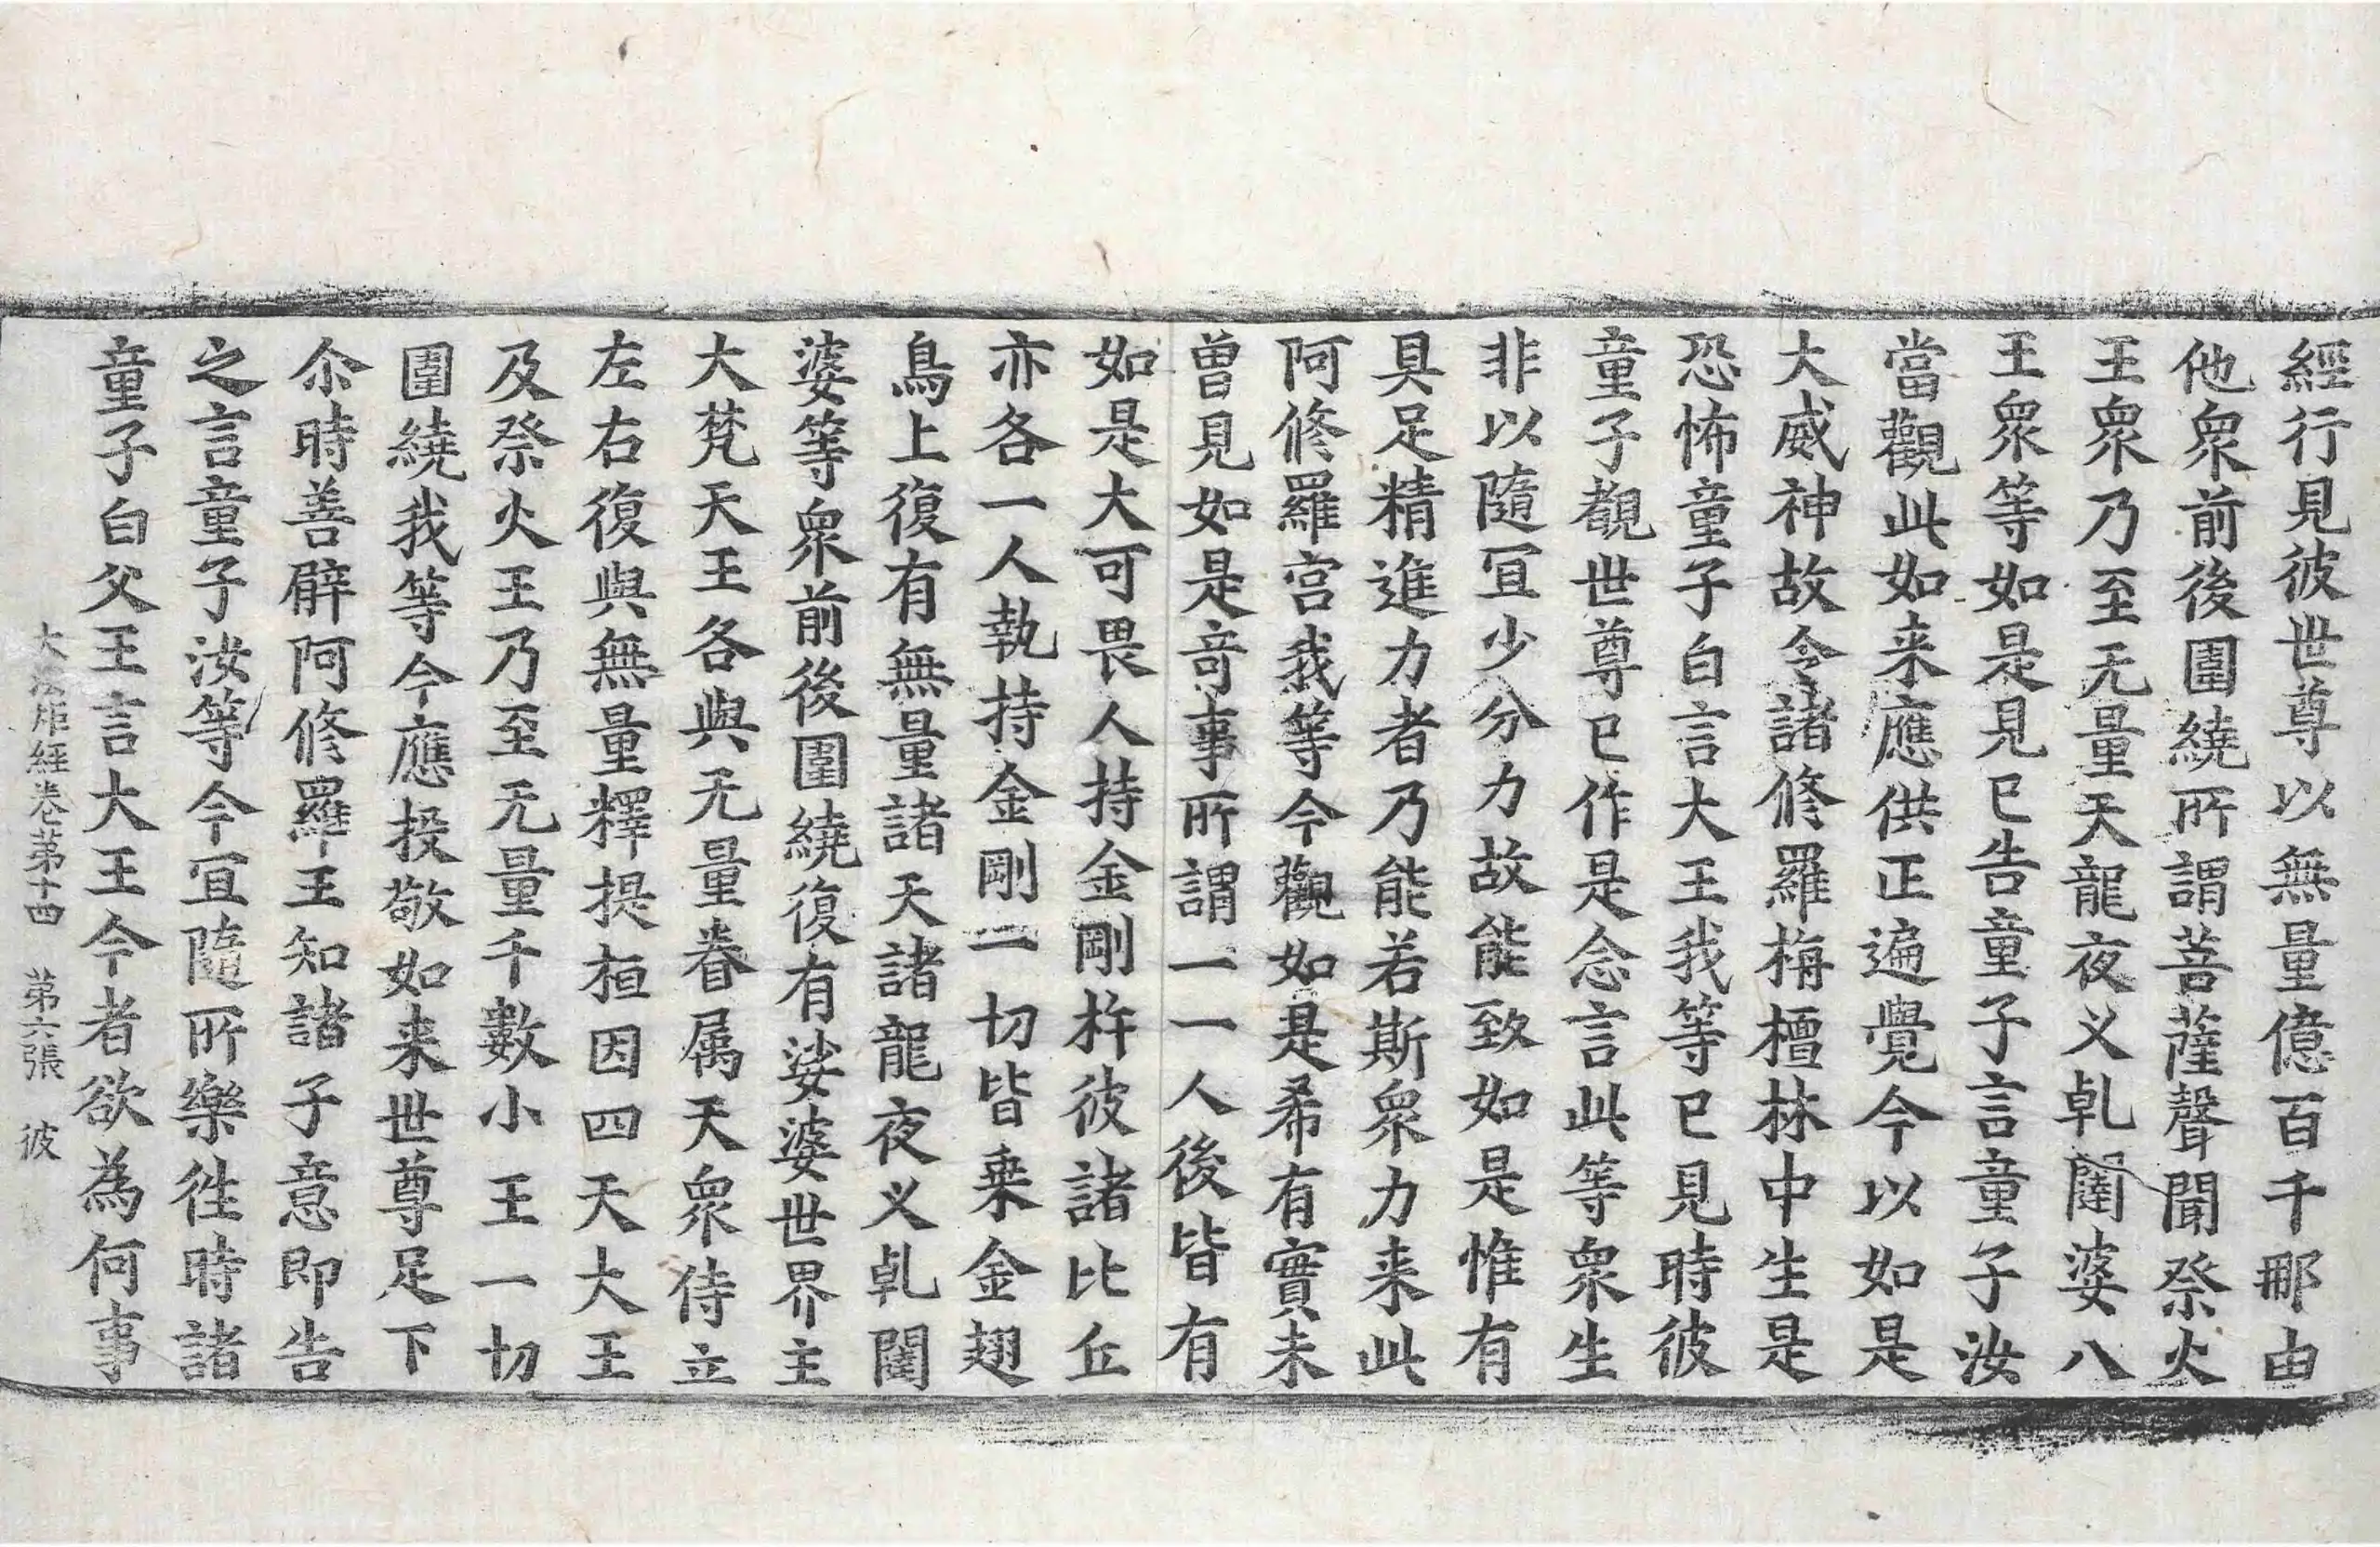 經行見彼世尊以無量億百千那由
他衆前後圍繞所謂菩薩聲聞祭火
王衆乃至无量天龍夜义乹闥婆八
王衆等如是見已告童子言童子汝
當觀此如来應供正遍覺今以如是
大威神故令諸修羅栴檀林中生是
恐怖童子白言大王我等已見時彼
童子觀世尊已作是念言此等衆生
非以隨冝少分力故能致如是惟有
具足精進力者乃能若斯衆力来此
阿修羅宫我等今觀如是希有實未
曽見如是竒事所謂一一人後皆有
如是大可畏人持金剛杵彼諸比丘
亦各一人執持金剛一切皆乗金翅
鳥上復有無量諸天諸龍夜义乹闥
婆等衆前後圍繞復有娑婆世界主
大梵天王各與无量眷属天衆侍立
左右復與無量釋提桓因四天大王
及祭火王乃至无量千數小王一切
圍繞我等今應投敬如来世尊足下
尒時善臂阿修羅王知諸子意即告
之言童子汝等今冝隨所樂徃時諸
童子白父王言大王今者欲為何事
大法炬經卷第十四 第六張 彼